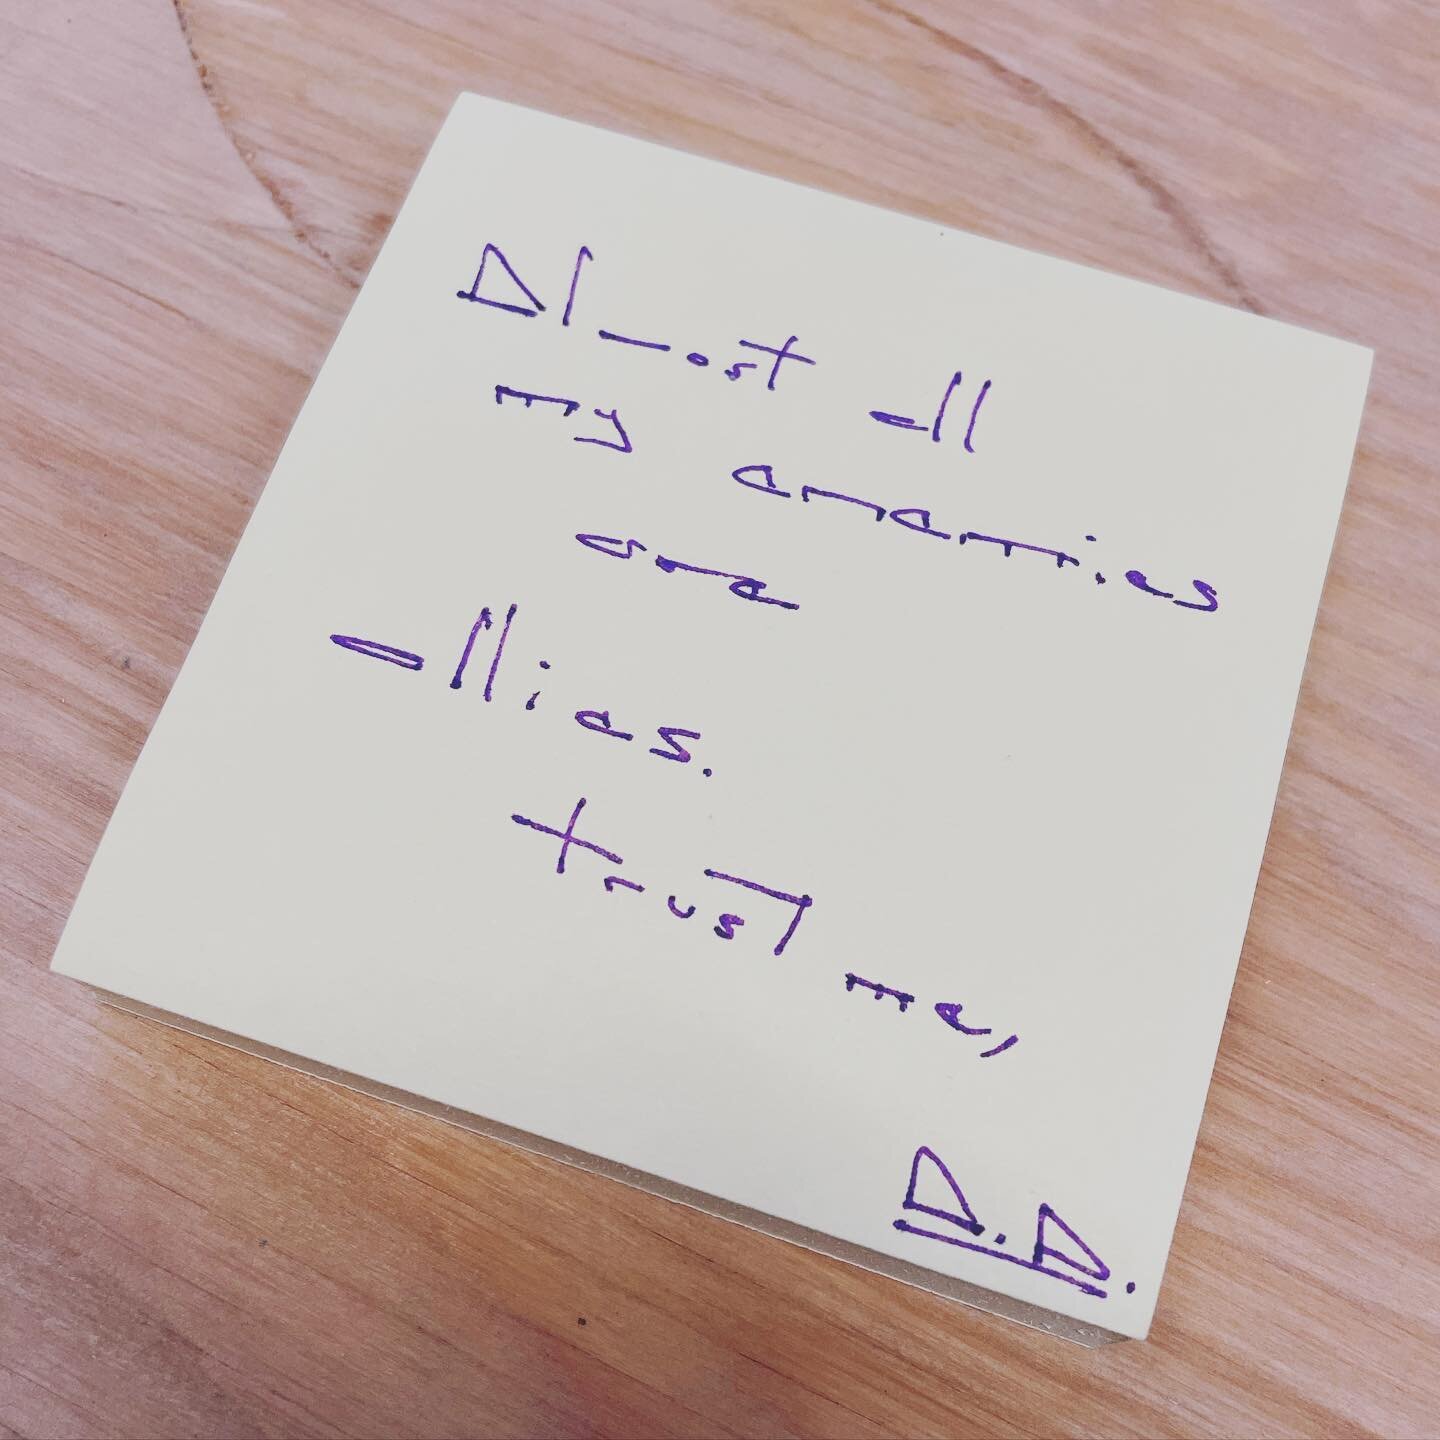 Almost all
my enemies
are
allies.
trust me,
D.D.